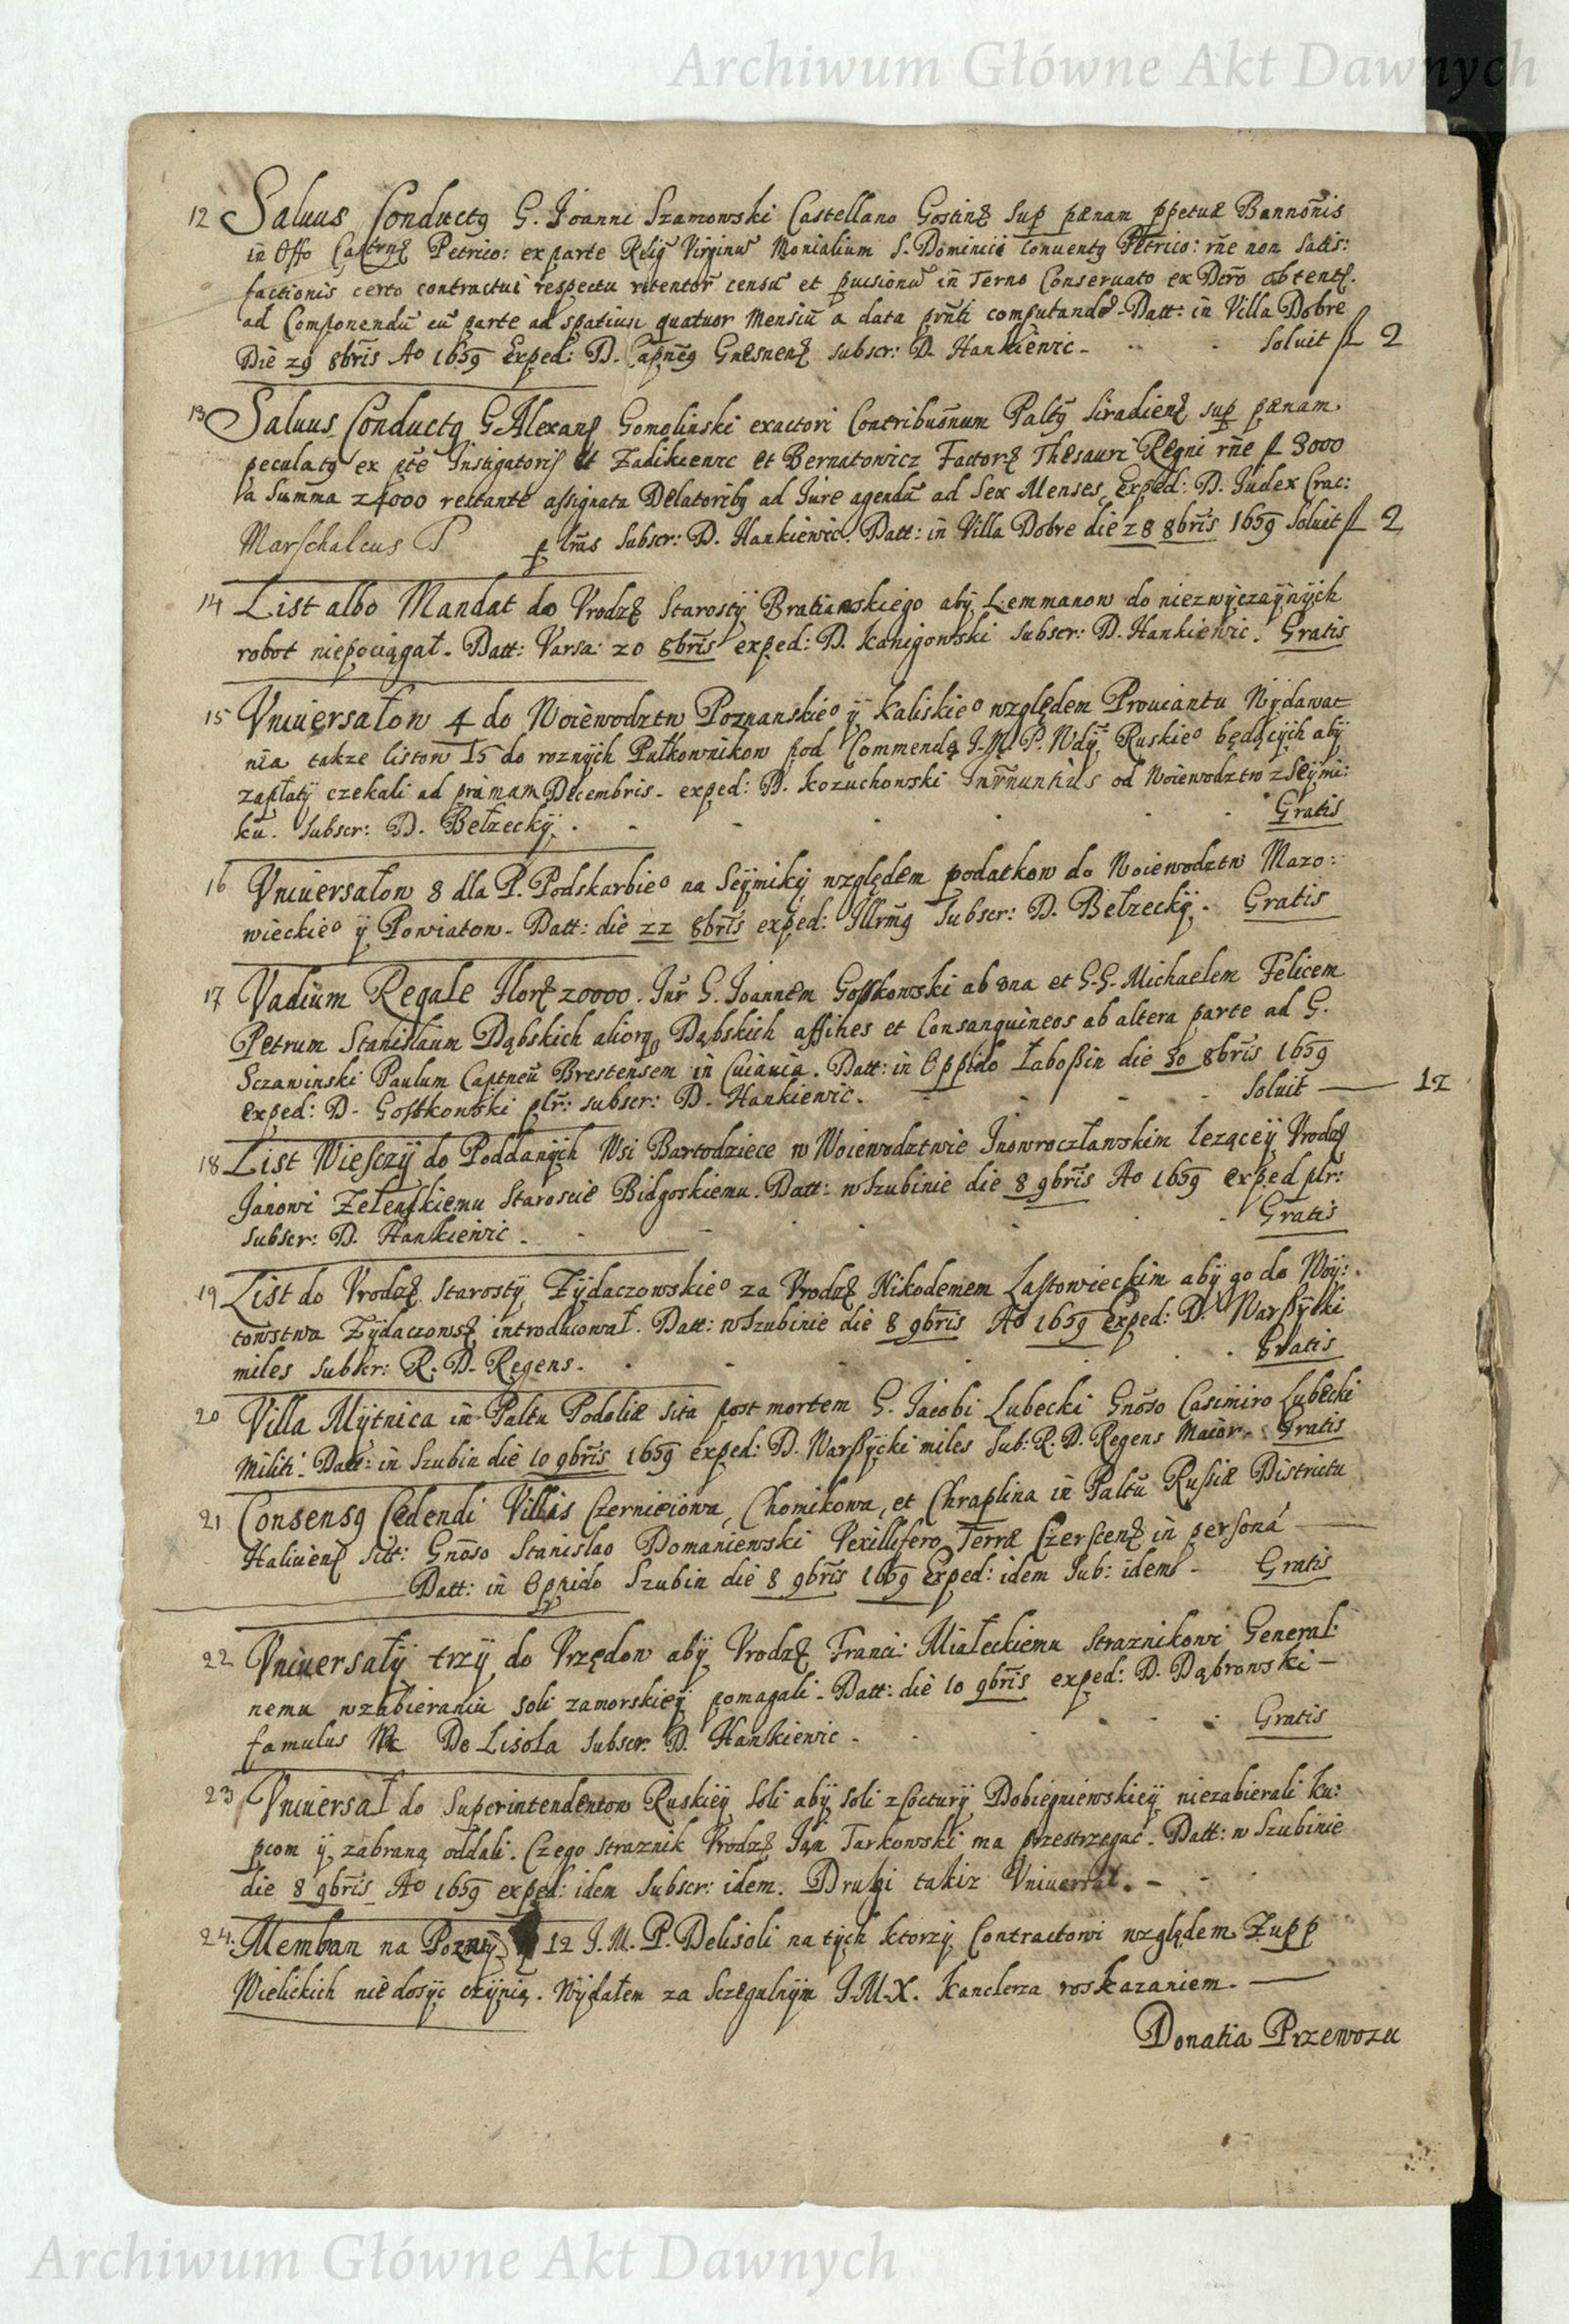 Archiwum Główne Akt Dawnych
12 Saluus Conductꝯ G. Joanni Szamowski Castellano Gostinę sup pænam ppetuæ Bannõnis
in Offo Castrnę Petrico: ex parte Relig Virginũ Monialium S. Dominici Conventꝯ Petrico: rñe non Satis:
factionis certo contractui respectu retentor censũ et in Terno Conservato ex Dcrõ obtentę.
ad Componendũ cũ parte ad spatium quatuor Mensiũ a data prñti computando. Datt: in Villa Dobre
Die 29 8brĩs Ao 1659 Exped: D. Capnẽꝯ Gnesnenę subscr: D. Hankiewic. Soluit fl 2
13 Saluus Conductꝯ G Alexanꝭ Gomolinski exactori Contribuõnum Paltꝯ Siradienę sup pænam
peculatꝯ ex pte Instigatoris et Zadikiewic et Bernatowicz Factorę Thesauri Regni rñe fl 3000
a Summa 24000 restante assignata Delatoribꝯ ad Jure agendũ ad Sex Menses, Exped: D. Judex Crac:
Marschalcus P lrãs Subscr: D. Hankiewic. Datt: in Villa Dobre die 28 8brĩs 1659 Soluit fl 2
14 List albo Mandat do Vrodzę Starosty Bratianskiego aby Lemmanow do niezwyczaynych
robot niepociągał. Datt: Varsa: 20 8brĩs exped: D. Kanigowski subscr: D. Hankiewic. Gratis
15 Vniversałow 4 do Woiewodztw Poznanskieo ÿ Kaliskieo względem Prowiantu Wydawa
nia takze listow 15 do roznych Pułkownikow pod Commendą J.M. P. Wdy Ruskieo będących aby
zapłaty czekali ad primam Decembris. exped: D. Kozuchowski Internuntius od Woiewodztw z Seymi:
ku. Subscr: D. Bełzecky. Gratis
16 Vniversałow 8 dla P. Podskarbieo na Seymiky względem podatkow do Woiewodztw Mazo:
wieckieo y Powiatow. Datt: die 22 8brĩs exped: Illrmꝯ Subscr: D. Bełzecky. Gratis
17 Vadium Regale Florę 20000. Intr G. Joannem Gosłkowski ab una et G.G. Michaelem Felicem
Petrum Stanislaum Dąbskich aliorꝯ Dąbskich affines et Consanguineos ab altera parte ad G.
Sczawinski Paulum Captneũ Brestensem in Cuiavia. Datt: in Oppido Łaboßin die 30 8brĩs 1659
exped: D. Gosłkowski plr: subscr: D. Hankiewic. Soluit — 12
18 List Wiesczy do Poddanych Wsi Bartodziece w Woiewodztwie Inowroczławskim lezącey Vrodzę
Janowi Zeleńskiemu Staroscie Bidgoskiemu. Datt: w Szubinie die 8 9brĩs Ao 1659 exped plr:
subscr: D. Hankiewic. Gratis
19 List do Vrodzę Starosty Zydaczowskieo za Vrodzę Nikodemem Łastowieckim aby go do Woy:
towstwa Zydaczowsę introducował. Datt: w Szubinie die 8 9brĩs Ao 1659 Exped: D. Warßycki
miles subscr: R. D. Regens. Gratis
20 Villa Mytnica in Paltu Podoliæ sita post mortem G. Jacobi Lubecki Gnõso Casimiro Lubecki
Militi. Datt: in Szubin die 10 9brĩs 1659 exped: D. Warßycki miles Sub: R. D. Regens Maior. Gratis
21 Consensꝯ Cedendi Villas Czernieiowa, Chomikowa, et Chraplina in Paltũ Russiæ Districtu
Halicienꝭ sitt: Gnõso Stanislao Domaniewski Vexillifero Terræ Czerscenę in personá —
Datt: in Oppido Szubin die 8 9brĩs 1659 Exped: idem Sub: idem. Gratis
22 Vniversały trzy do Vrzędow aby Vrodzę Franci: Miałeckiemu straznikowi General:
nemu w zabieraniu soli zamorskiey pomagali. Datt: die 10 9brĩs exped: D. Dąbrowski —
famulus De Lisola Subscr: D. Hankiewic. Gratis
23 Vniversał do Superintendentow Ruskiey Soli aby soli z Coctury Dobiegniewskiey niezabierali ku:
pcom y zabraną oddali. Czego straznik Vrodzę Jan Tarkowski ma przestrzegać. Datt: w Szubinie
die 8 9brĩs Ao 1659 exped: idem Subscr: idem. Drugi takiz Vniversał.
24. Memban na Pozwy 12 J.M.P. Delisoli na tych ktorzy Contractowi względem Zupp
Wielickich nie dosyc czynią. Wydałem za Sczegulnym J.M.X. Kanclerza roskazaniem. —
Donatia Przewozu
Archiwum Główne Akt Dawnych